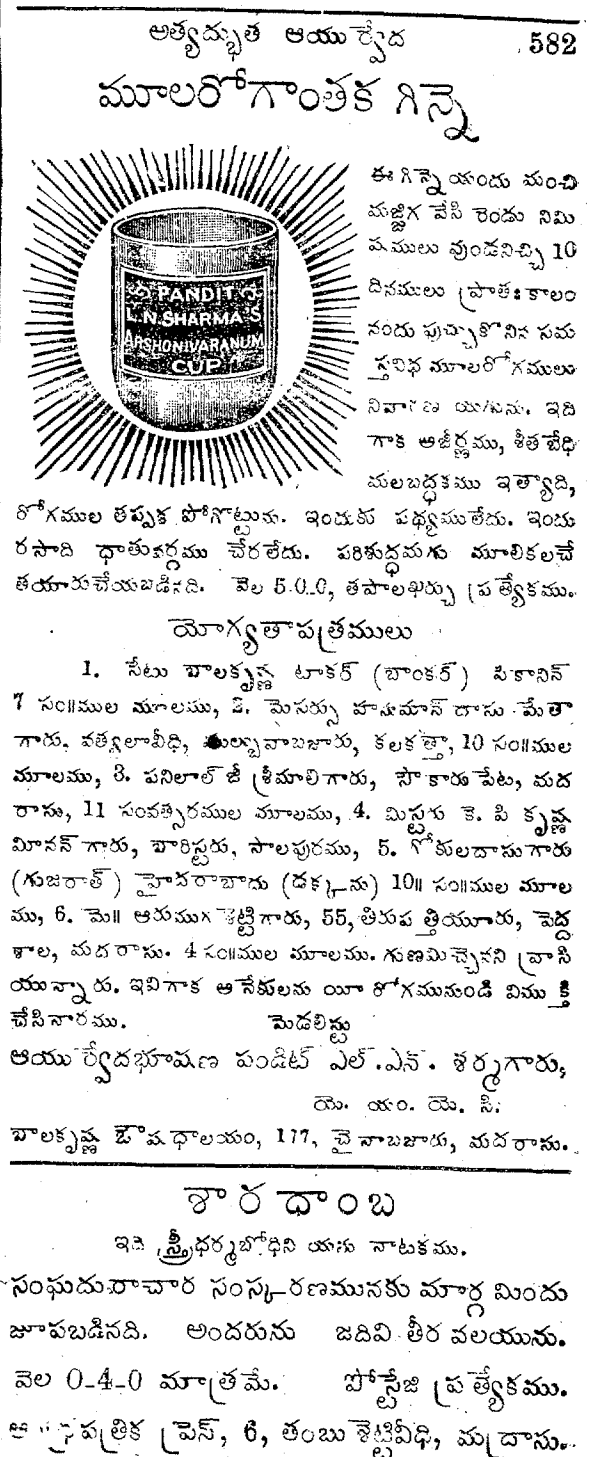 అత్యద్భుత ఆయుర్వేద 582
మూలరోగాంతక గిన్నె
PANDIT
L.N. SHARMA'S
ARSHONIVARANUM
CUP
ఈ గిన్నెయందు మంచి
మజ్జిగ వేసి రెండు నిమి
షములు వుండనిచ్చి 10
దినములు ప్రాతఃకాలం
నందు పుచ్చుకొనిన సమ
స్తవిధ మూలరోగములు
నివారణ యగును. ఇది
గాక ఆజీర్ణము, శీతబేధి
మలబద్ధకము ఇత్యాది,
రోగముల తప్పక పోగొట్టును. ఇందుకు పథ్యములేదు. ఇందు
రసాది ధాతువర్గము చేరలేదు. పరిశుద్ధమగు మూలికలచే
తయారుచేయబడినది. వెల 5-0-0, తపాలఖర్చు ప్రత్యేకము.
యోగ్యతాపత్రములు
1. సేటు బాలకృష్ణ టాకర్ (బాంకర్) సికానిన్
7 సం॥ముల మూలము, 2. మెసర్సు హనుమాన్ దాసు మేతా
గారు, వత్యలావీధి, బజారు, కలకత్తా, 10 సం॥ముల
మూలము, 3. పనిలాల్ జీ శ్రీమాలిగారు, సౌకారుపేట, మద
రాసు, 11 సంవత్సరముల మూలము, 4. మిస్టరు కె. పి కృష్ణ
మీనన్ గారు, బారిస్టరు, సాలపురము, 5. గోకులదాసుగారు
(గుజరాత్) హైదరాబాదు (డక్కను) 10॥ సం॥ముల మూల
ము, 6. మె॥ ఆరుముగశెట్టిగారు, 55, తిరుపత్తియూరు, పెద్ద
శాల, మదరాసు. 4 సం॥ముల మూలము. గుణమిచ్చెనని వ్రాసి
యున్నారు. ఇవిగాక ఆనేకులను యీ రోగమునుండి విముక్తి
చేసినారము. మెడలిస్టు
ఆయుర్వేదభూషణ పండిట్ ఎల్.ఎన్. శర్మగారు,
యె. యం. యె. సి.
బాలకృష్ణ ఔషధాలయం, 177, చైనాబజారు, మదరాసు.
శారదాంబ
ఇది స్త్రీధర్మబోధిని యను నాటకము.
సంఘదురాచార సంస్కరణమునకు మార్గ మిందు
జూపబడినది. అందరును జదివి తీర వలయును.
వెల 0-4-0 మాత్రమే. పోస్టేజి ప్రత్యేకము.
ఆంధ్రపత్రిక ప్రెస్, 6, తంబుశెట్టివీధి, మద్రాసు.